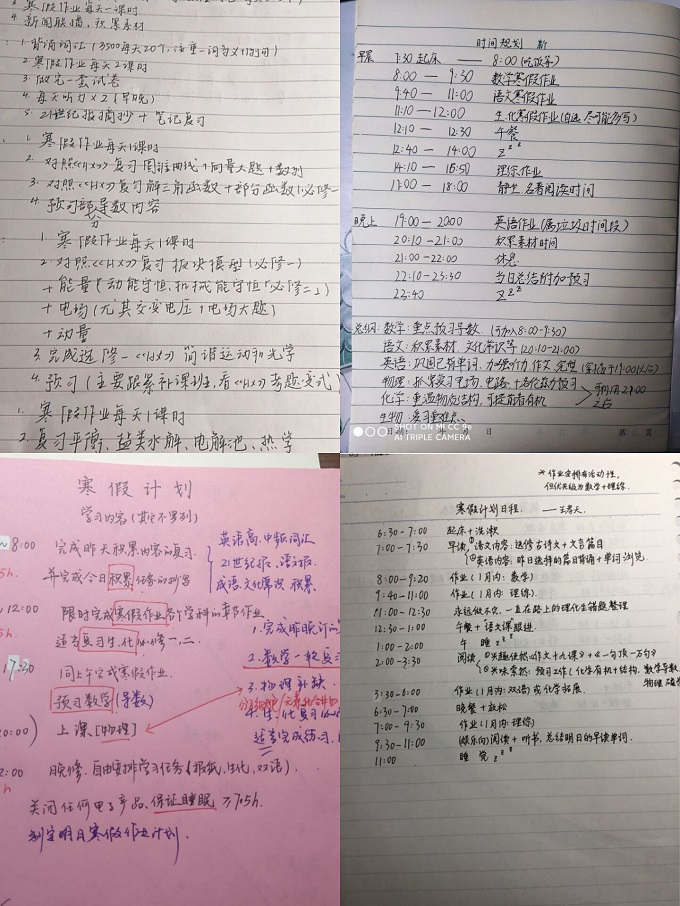 3. 寒假作业每天一课时
4. 新闻联播，积累素材
1. 背诵词汇(3500每天20个，注重一词多义)
2. 寒假作业每天2课时
3. 做完一套试卷
4. 每天听力×2(早晚)
5. 21世纪报摘抄 + 笔记复习
1. 寒假作业每天1课时
2. 对照<<HX>>复习圆锥曲线+向量大题+数列
3. 对照<<HX>>复习解三角函数+部分函数(必修一
4. 预习部分导数内容
1. 寒假作业每天1课时
2. 对照<<HX>>复习板块模型(必修一)
+ 能量(动能守恒,机械能守恒"必修二")
+ 电场(尤其交变电压,电场大题)
+ 动量
3. 完成选修一<<HX>>简谐运动和光学
4. 预习(主要跟紧补课班,看<<HX>>考题变式
1. 寒假作业每天1课时
2. 复习平衡、盐类水解、电解池、热学
时间规划 新
早晨 7:30 起床 —— 8:00 (吃饭等)
8:00 — 9:30 数学寒假作业
9:40 — 11:00 语文寒假作业
11:10 — 12:00 生、化寒假作业(自选 尽可能多写)
12:10 — 12:30 午餐
12:40 — 14:00 Zzz
14:10 — 16:50 理综作业
17:00 — 18:00 静坐 名著阅读时间
晚上 19:00 — 20:00 英语作业(属垃圾时间段)
20:10 — 21:00 积累素材时间
21:00 — 22:00 休息
22:10 — 23:30 当日总结附加预习
23:40 Zzz
总纲: 数学: 重点预习导数 (可加入8:00-9:30)
语文: 积累素材,文化常识等 (20:10-21:00)
英语: 巩固已有单词,加强听力,作文,完型
物理: 抓紧复习电场,电路
化学: 重造物质结构,可提前看有机
生物: 复习重难点
SHOT ON MI CC 9e
AI TRIPLE CAMERA
寒假计划
学习内容(其它不罗列)
~8:00 完成昨天积累内容的复习
并完成今日积累任务的抄写
英语高.中频词汇
21世纪报、语文报
成语.文化常识 积累
12:00 限时完成寒假作业各个学科的章节作业
适当复习生、化必修一,二.
17:30 同上午完成寒假作业.
预习数学(导数)
1. 完成昨晚订的
2. 数学一轮复习
3. 物理补缺
20:00) 上课[物理]
4. 生、化复习
适当完成练习
2:00 晚修.自由安排学习任务(报纸,生化,双语).
关闭任何电子产品、保证睡眠≥7.5h.
制定明日寒假作业计划.
* 作业安排有活动性,
但优先级为数学+理综.
寒假计划日程 ——王君天.
6:30-7:00 起床+洗漱
7:00-7:30 早读 ①语文内容:选修古诗文+文言篇目
②英语内容:昨日选择的篇目背诵+单词浏览.
8:00-9:20 作业(1月内:数学)
9:40-11:00 作业(1月内:理综).
11:00-12:30 永远做不完,一直在路上的理化生错题整理
12:30-1:00 午餐+"语文课"跟进.
1:00-2:00 午睡 zzz
2:00-3:30 阅读 ①兴趣使然<作文十九课>+<一句顶一万句>
②兴味索然:预习工作(化学有机+结构,数学导数,
物理
3:30-6:00 作业(1月内:双语)或化学拓展.
6:30-7:00 晚餐+放松
7:00-9:30 作业(1月内:理综)
9:30-11:00 (娱乐向)阅读+听书,总结明日的早读单词.
11:00 睡觉 zzz